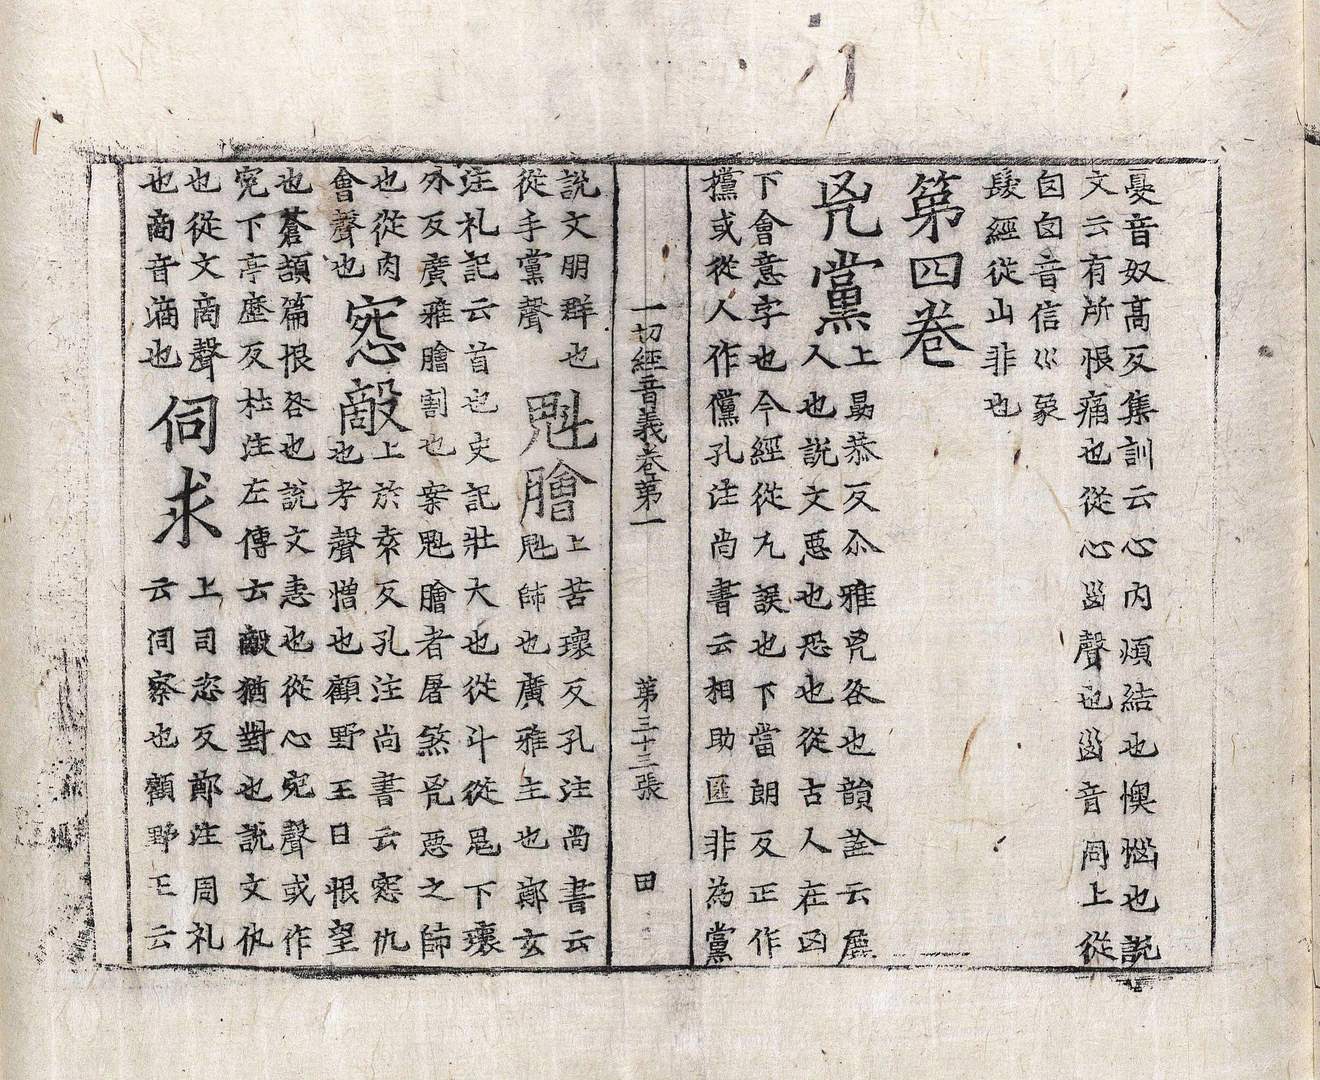 憂音奴高反集訓云心內煩結也懊惱也說
文云有所恨痛也從心𡿺聲也𡿺音同上從
囟囟音信巛象
髮經從山非也
第四卷
兇黨
上勗恭反尒雅兇咎也韻詮云
人也說文惡也恐也從古人在凶
下會意字也今經從九誤也下當朗反正作
攩或從人作儻孔注尚書云相助匪非為黨
一切經音義卷第一 第三十三張 田
說文朋群也
從手黨聲
魁膾
上苦瓌反孔注尚書云
魁師也廣雅主也鄭玄
注礼記云首也史記壯大也從斗從鬼下瓌
外反廣雅膾割也案魁膾者屠煞兇惡之師
也從肉
會聲也
寃敵
上於袁反孔注尚書云寃仇
也孝聲憎也顧野王曰恨望
也蒼頡篇恨咎也說文恚也從心宛聲或作
寃下亭歷反杜注左傳云敵猶對也說文仇
也從文啇聲
也啇音滴也
伺求
上司恣反鄭注周礼
云伺察也顧野王云